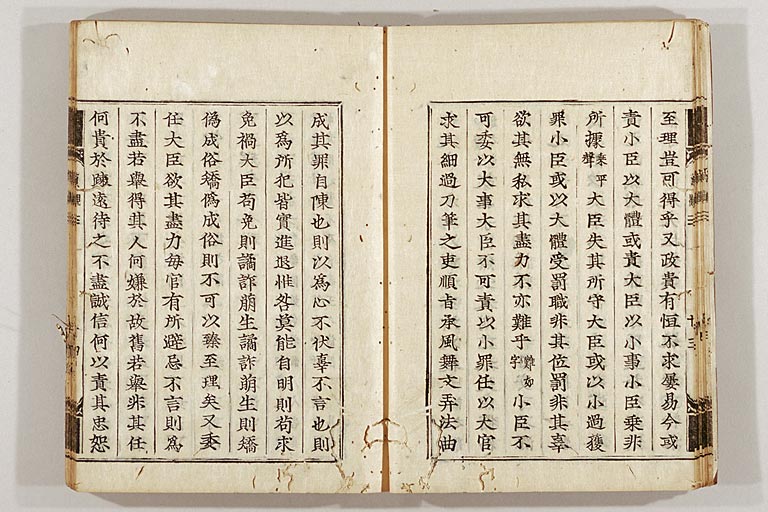 至理豈可得乎又政貴有恒不求屢易今或
責小臣以大體或責大臣以小事小臣乗非
所據乗平聲大臣失其所守大臣或以小過獲
罪小臣或以大體受罰職非其位罰非其辜
欲其無私求其盡力不亦難乎難如字小臣不
可委以大事大臣不可責以小罪任以大官
求其細過刀筆之吏順旨承風舞文弄法曲
成其罪自陳也則以爲心不伏辜不言也則
以爲所犯皆實進退惟咎莫能自明則苟求
免禍大臣苟免則譎詐萌生譎詐萌生則矯
僞成俗矯僞成俗則不可以臻至理矣又委
任大臣欲其盡力每官有所避忌不言則爲
不盡若舉得其人何嫌於故舊若舉非其任
何貴於踈遠待之不盡誠信何以責其忠恕